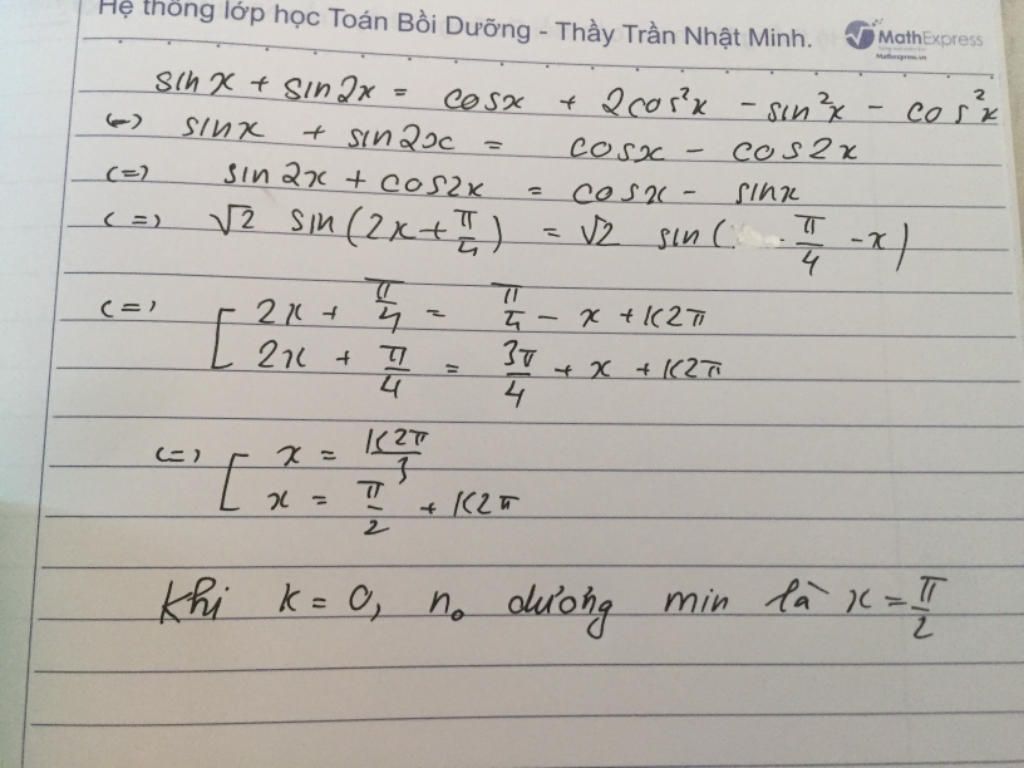 Hệ thống lớp học Toán Bồi Dưỡng - Thầy Trần Nhật Minh.
MathExpress
Mathexpress.vn
sinx + sin2x = cosx + 2cos²x - sin²x - cos²x
<=> sinx + sin2x = cosx - cos2x
<=> sin2x + cos2x = cosx - sinx
<=> √2 sin(2x + π/4) = √2 sin( π/4 - x)
<=> [ 2x + π/4 = π/4 - x + k2π
2x + π/4 = 3π/4 + x + k2π
<=> [ x = k2π/3
x = π/2 + k2π
Khi k = 0, no dương min là x = π/2